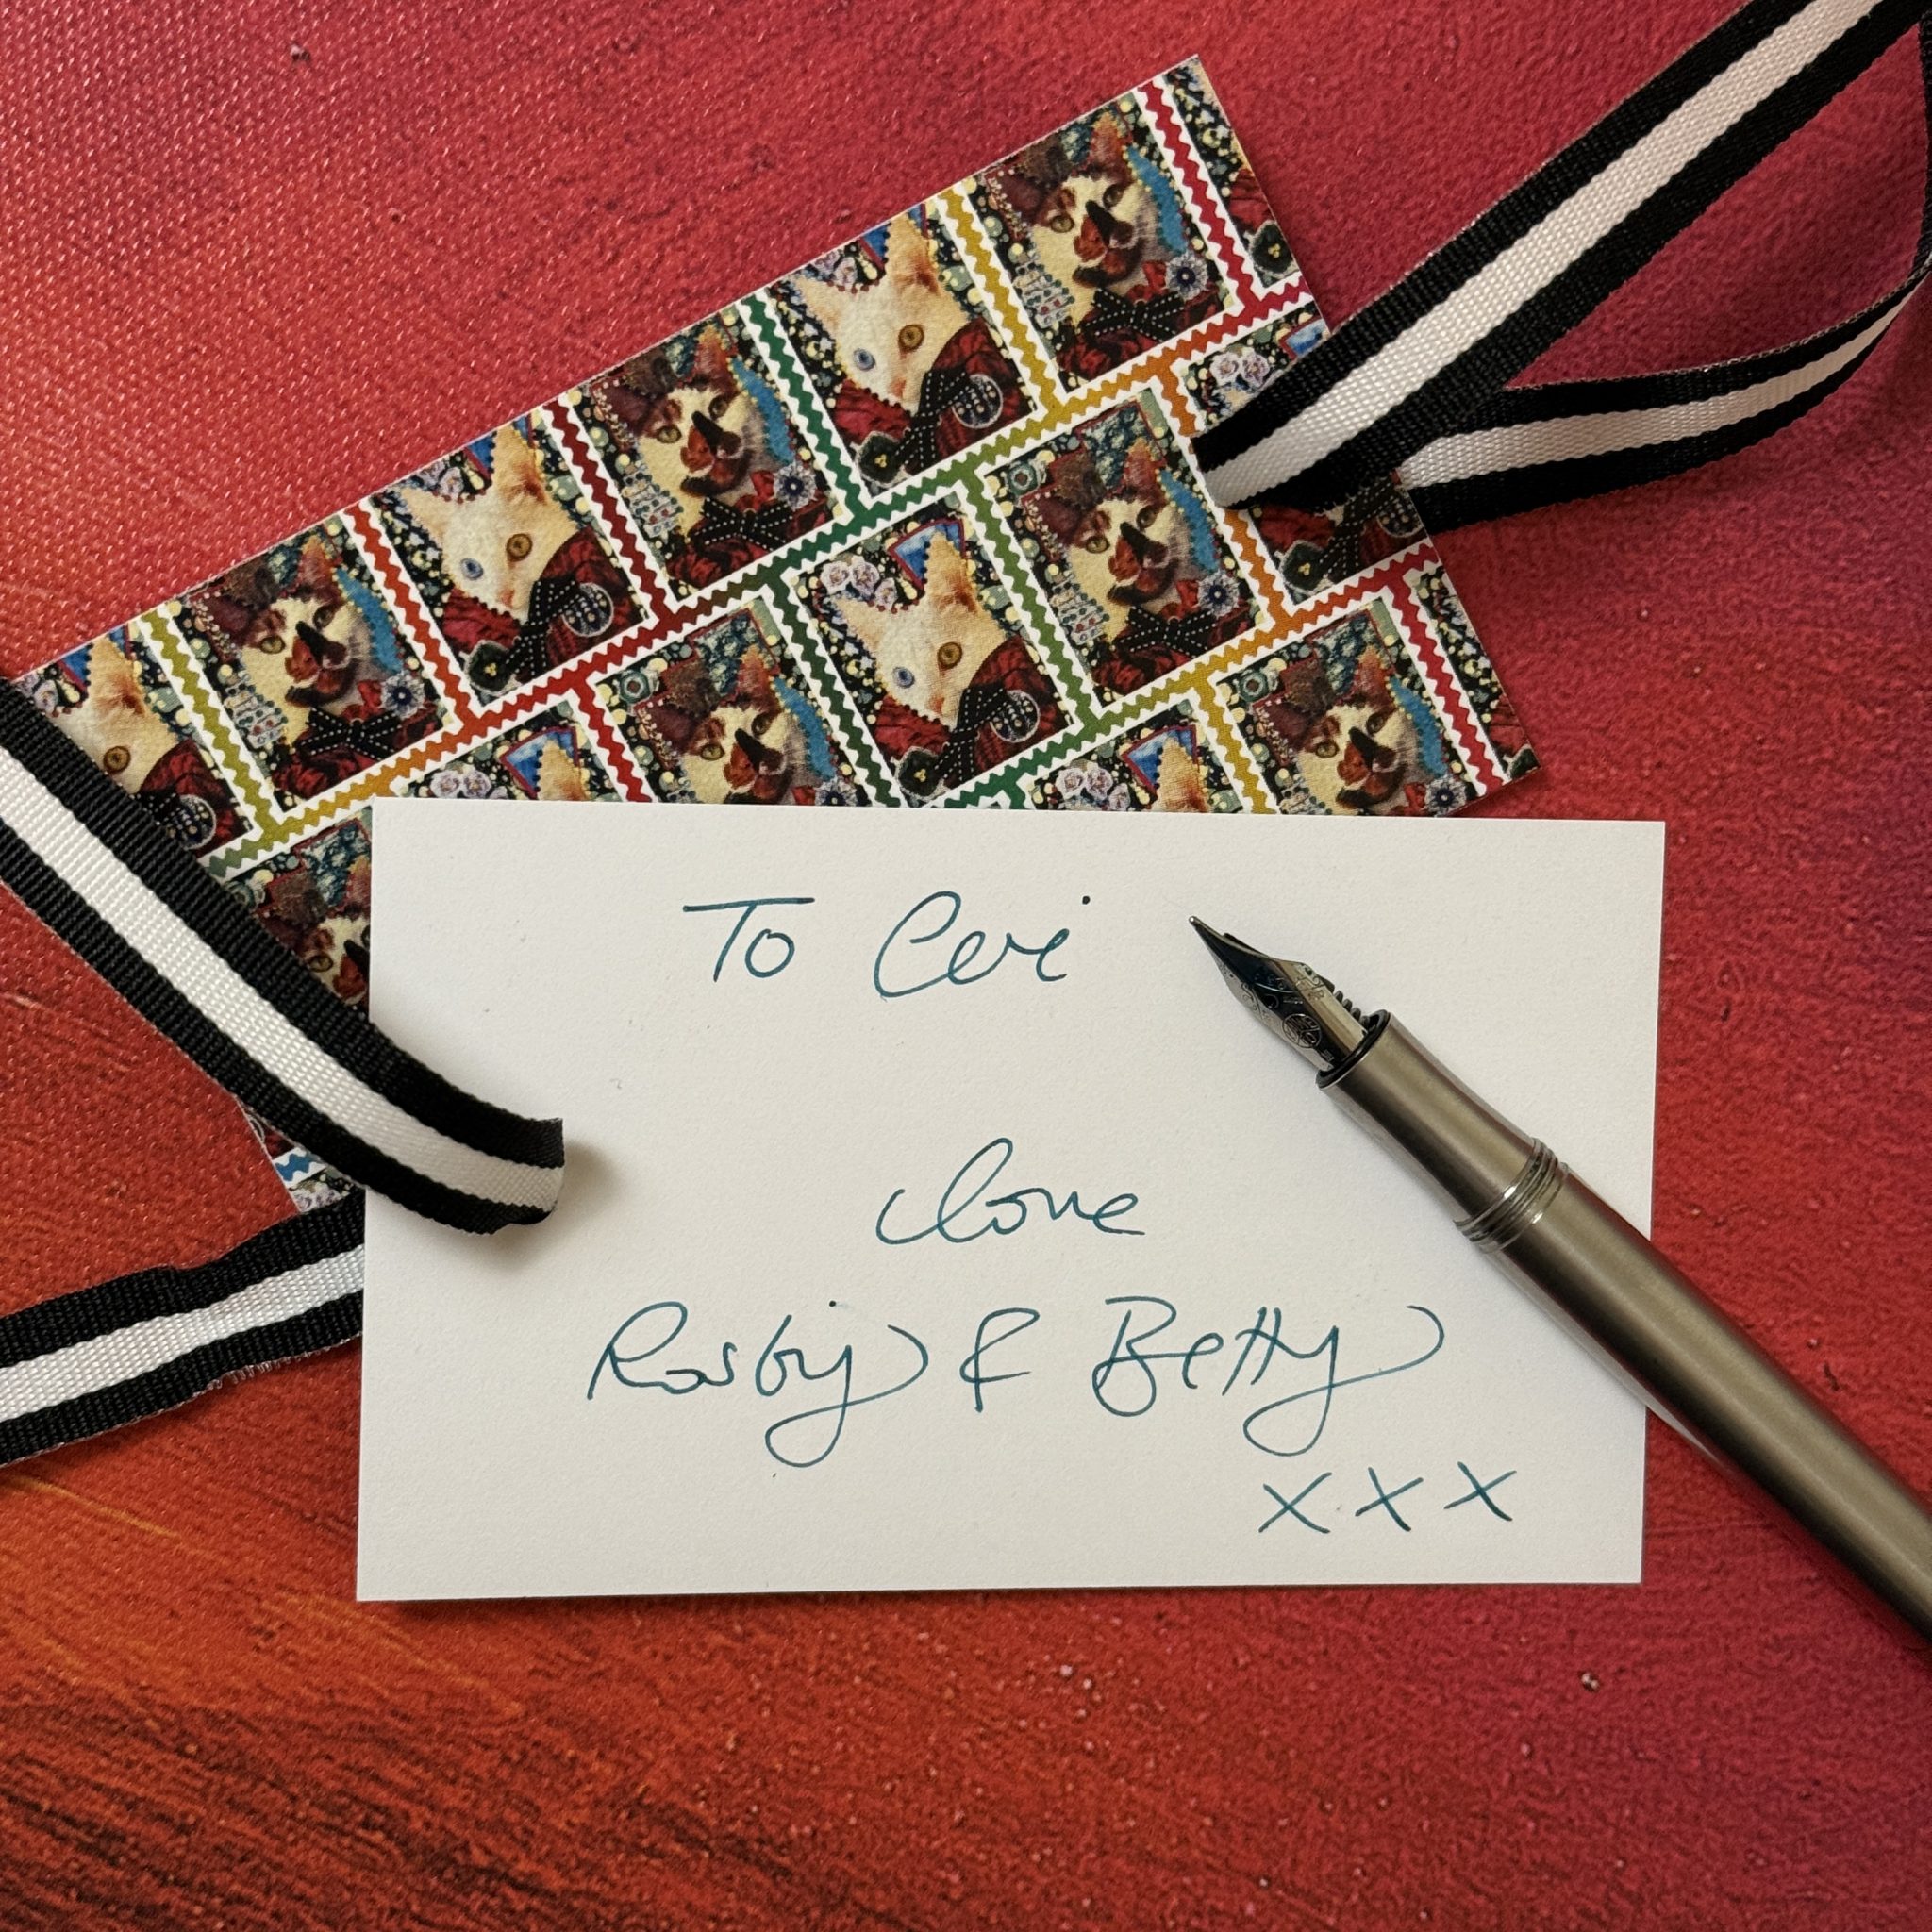 To Ceri
love
Rosby & Betty
x x x